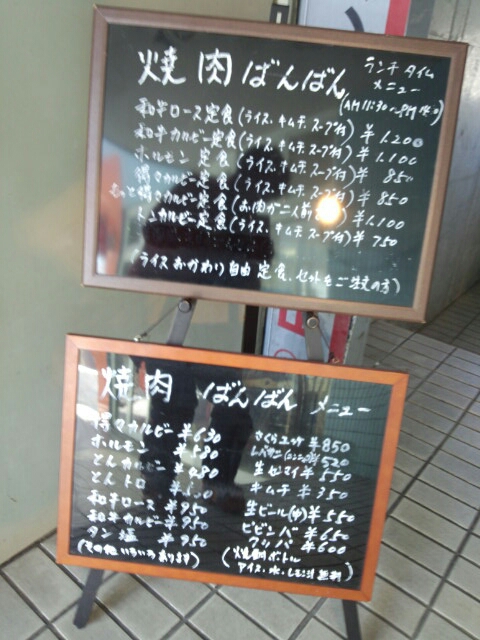 焼肉ばんばん
ランチタイム
メニュー
(AM11:30〜
和牛ロース定食(ライス、キムチ、スープ付)¥1,200
和牛カルビー定食(ライス、キムチ、スープ付)¥1,100
ホルモン定食(ライス、キムチ、スープ付)¥850
得々カルビ定食(ライス、キムチ、スープ付)¥850
もっと得々カルビ定食(お肉が二人前 ¥1,100
トンカルビー定食(ライス、キムチ、スープ付)¥750
(ライスおかわり自由 定食、セットをご注文の方)
焼肉 ばんばん メニュー
得々カルビー ¥630
ホルモン ¥580
とんカルビー ¥480
とんトロ
和牛ロース ¥950
和牛カルビー ¥950
タン塩 ¥950
(その他いろいろあります)
さくらユッケ ¥850
¥520
生センマイ ¥550
キムチ ¥350
生ビール(中)¥550
ビビンバ ¥650
クッパ ¥600
(焼酎ボトル
アイス・水・レモン汁 無料)